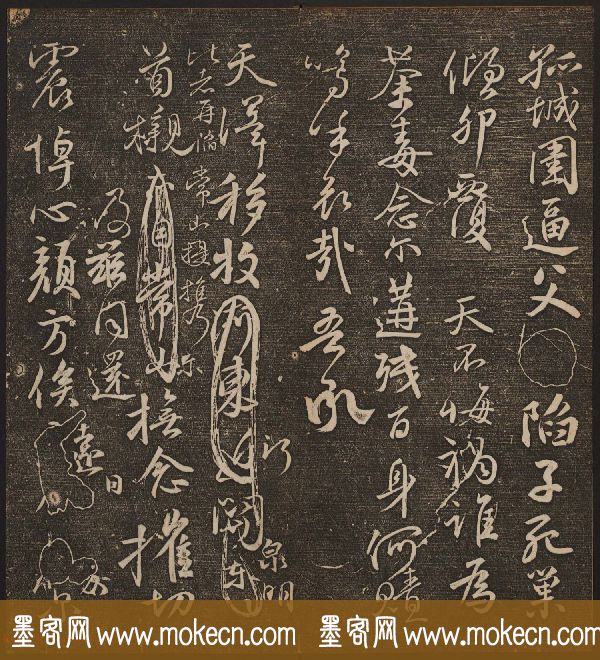 孤城圍逼父陷子死巢
傾卵覆天不悔禍誰為
荼毒念爾遘殘百身何贖
嗚乎哀哉吾承
天澤移牧河東近
泉明
比者再陷常山提攜爾
首櫬亦自常山撫念摧切
及茲同還
震悼心顏方俟
遠日
墨客网 www.mokecn.com 墨客网 www.mokecn.com